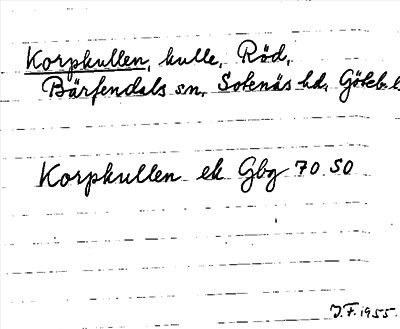 Korpkullen, kulle, Röd,
Bärfendals sn, Sotenäs hd, Göteb. l
Korpkullen ek Gbg 70 SO
J.F. 1955.